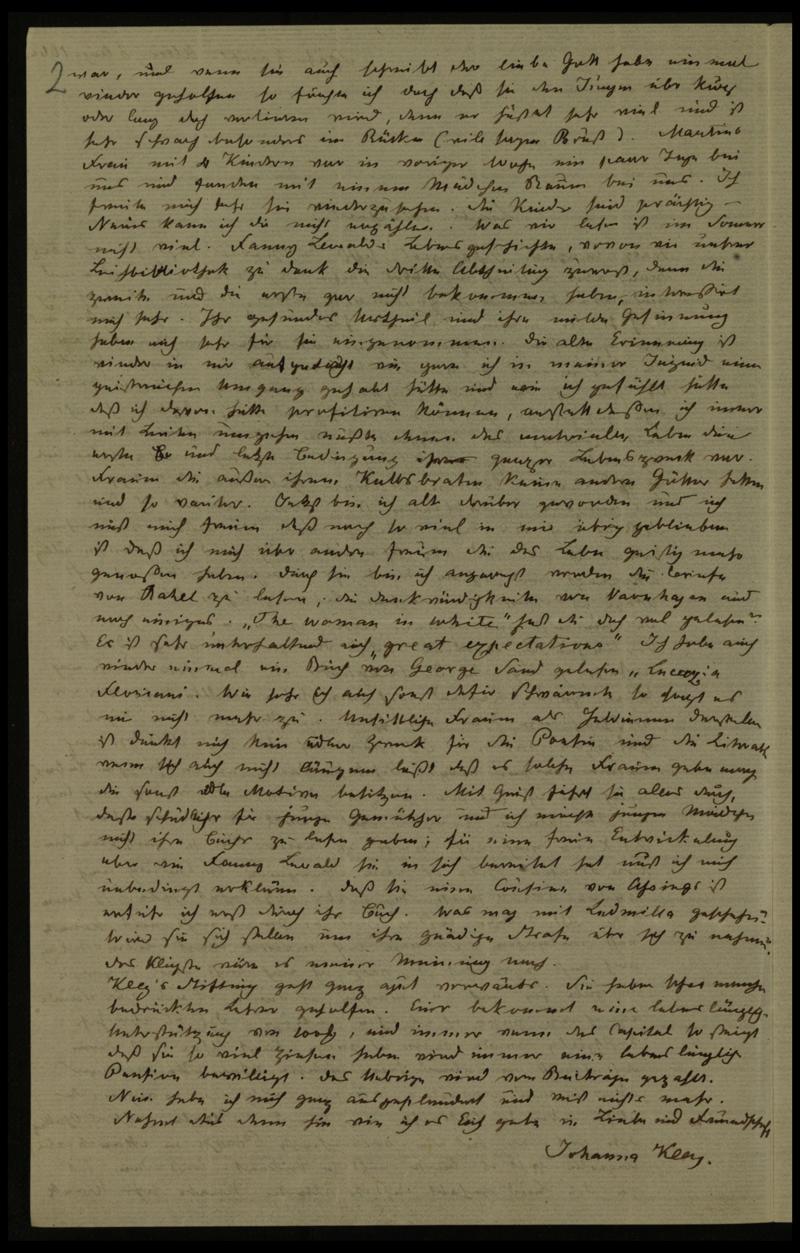 2 war, und wenn sie auch schreibt der liebe Gott habe einmal
wieder geholfen so fürchte ich doch daß sie den Jungen über kurz
oder lang doch verlieren wird, denn er hustet sehr viel und ist
sehr schwach besonders im Rücken (viele sagen Brust). Martins
Frau mit Kindern war in voriger Woche ein paar Tage bei
uns und fanden mit einem Mädchen Raum bei uns. Ich
freute mich sehr sie wiederzusehen. Die Kinder sind prächtig –
Neues kann ich dir nicht erzählen. Was wir lesen ist im Sommer
nicht viel. Fanny Lewalds Lebensgeschichte, wovon wir unsrer
Leihbibliothek zu dank die dritte Abtheilung zuerst, dann die
zweite und die erste gar nicht bekommen haben, interessirt
mich sehr. Ihr gesundes Urtheil und ihre milde Gesinnung
haben mich sehr für sie eingenommen. Die alte Erinnerung ist
wieder in mir aufgedacht wie gern ich in meiner Jugend einen
geistreichen Umgang gehabt hätte und wie ich gefühlt hätte
daß ich davon hätte profitiren können, anstatt dessen ich immer
mit Leuten umgehen mußte denen das materielle Leben die
erste und letzte Bedingung ganzer Lebenszweck war.
Frauen die außer ihrem Kalbsbraten keine andern Götter hatten
und so weiter. Jetzt bin ich alt darüber geworden und ich
muß mich freuen daß noch so viel in mir übrig geblieben
ist daß ich mich über andre freuen die das Leben geistig mehr
genossen haben. Durch sie bin ich angeregt worden die Briefe
von Rahel zu lesen, die Denkwürdigkeiten von Varnhagen und
noch einiges. „The woman in white" hast du doch mal gelesen?
Es ist sehr unterhaltend auch „great expectations" Ich habe auch
wieder einmal ein Buch von George Sand gelesen „Lucrezia
Floriani. Wie sehr ich auch sonst dafür schwärmte so sagt es
mir nicht mehr zu. Unsittliche Frauen als Heldinnen darstellen
ist dünkt mich kein edler Zweck für die Poesie und die Literatur
wenn sich auch nicht läugnen läßt daß es solche Frauen geben mag
die sonst edle Motive besitzen. Mit Geist führt sie alles durch,
desto schädlicher für junge Gemüther und ich möchte jungen Mädchen
nicht ihre Bücher zu lesen geben; für eine freie Entwickelung
aber wie Fanny Lewald sie in sich bereitet hat muß ich mich
unbedingt erklären. Daß sie eine Cousine von Assings ist
erfuhr ich erst durch ihr Buch. Was mag mit Ludmilla geschehen?
Wird sie sich stellen um ihre gnädige Strafe über sich zu nehmen?
Das Klügste wäre es meiner Meinung nach.
Klee's Stiftung geht ganz gut vorwärts. Sie haben schon manchen
bedrückten Lehrer geholfen. Einer bekommt eine lebenslängliche
Unterstützung von 100, und immer wenn das Capital so steigt
daß sie so viel Zinsen haben wird immer eine lebenslängliche
Pension bewilligt. Das Uebrige wird von Beiträgen gezahlt.
Nun habe ich mich ganz ausgeplündert und weiß nichts mehr.
Nehmt Alles denn hin wie ich es Euch gebe in Liebe und Freundschaft
Johanna Klee.